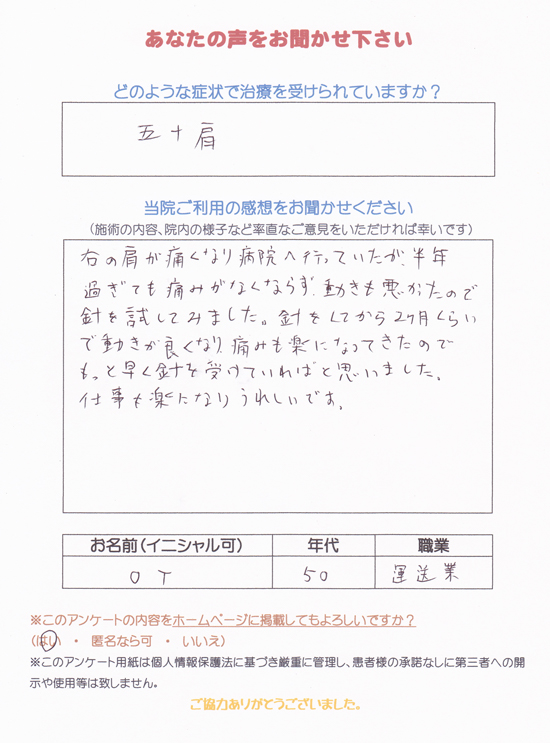 あなたの声をお聞かせ下さい
どのような症状で治療を受けられていますか？
五十肩
当院ご利用の感想をお聞かせください
（施術の内容、院内の様子など率直なご意見をいただければ幸いです）
右の肩が痛くなり病院へ行っていたが、半年
過ぎても痛みがなくならず、動きも悪かたので
針を試してみました。針をしてから2ヶ月くらい
で動きが良くなり、痛みも楽になってきたので
もっと早く針を受けていればと思いました。
仕事も楽になりうれしいです。
お名前（イニシャル可） 年代 職業
OT 50 運送業
※このアンケートの内容をホームページに掲載してもよろしいですか？
（はい ・ 匿名なら可 ・ いいえ）
※このアンケート用紙は個人情報保護法に基づき厳重に管理し、患者様の承諾なしに第三者への開
示や使用等は致しません。
ご協力ありがとうございました。